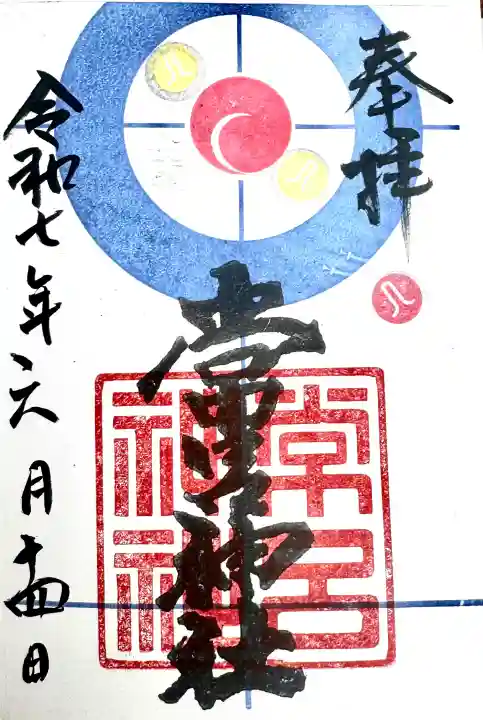 奉拝
常呂神社
常呂
神社
令和七年六月十四日